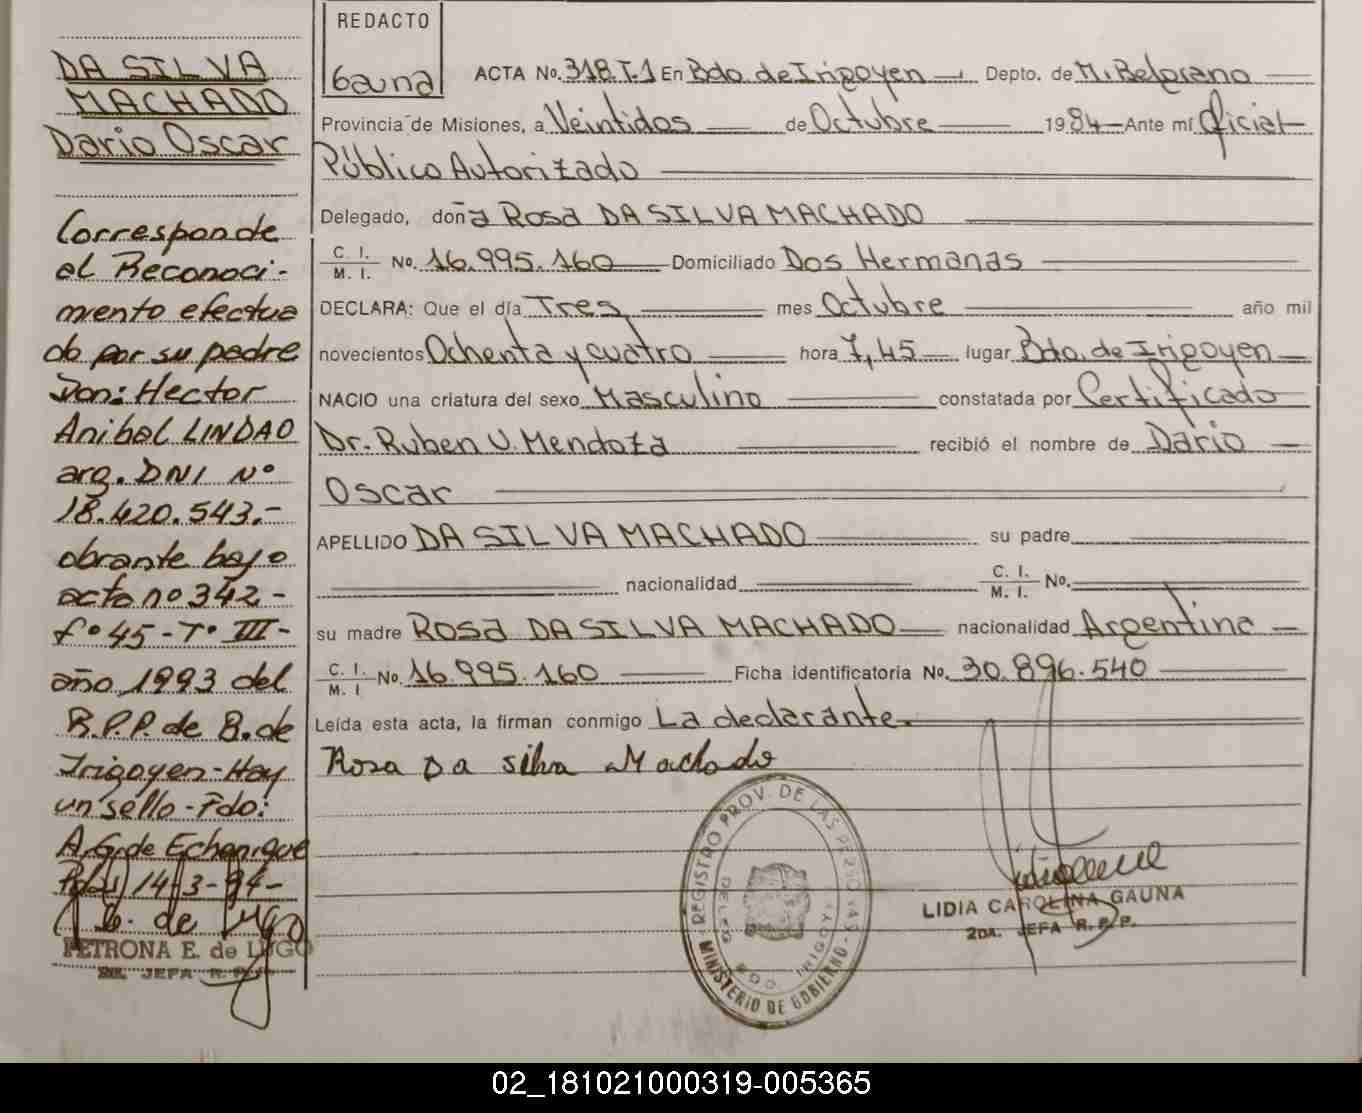 DA SILVA
MACHADO
Dario Oscar
Corresponde
el Reconoci-
miento efectua
do por su padre
Don: Hector
Anibal LINDAO
arg. DNI Nº
18.420.543.-
obrante bajo
acta nº 342-
fº 45-Tº III-
año 1993 del
R.P.P. de B. de
Irigoyen-Hay
un sello-Fdo:
A.G. de Echenique
14-3-94-
PETRONA E. de LUGO
2DA. JEFA R.P.P.
REDACTO
Gauna
ACTA No. 318.T.1 En Bdo. de Irigoyen Depto. de M. Belgrano
Provincia de Misiones, a Veintidos de Octubre 1984 Ante mí Oficial
Público Autorizado
Delegado, doña Rosa DA SILVA MACHADO
C. I.
M. I. No. 16.995.160 Domiciliado Dos Hermanas
DECLARA: Que el día Tres mes Octubre año mil
novecientos Ochenta y cuatro hora 7,45 lugar Bdo. de Irigoyen
NACIO una criatura del sexo Masculino constatada por Certificado
Dr. Ruben U. Mendoza recibió el nombre de Dario
Oscar
APELLIDO DA SILVA MACHADO su padre
nacionalidad C. I.
M. I. No.
su madre Rosa DA SILVA MACHADO nacionalidad Argentina
C. I.
M. I No. 16.995.160 Ficha identificatoria No. 30.896.540
Leída esta acta, la firman conmigo La declarante.
Rosa Da silva Machado
REGISTRO PROV. DE LAS PERSONAS
MINISTERIO DE GOBIERNO
BDO. IRIGOYEN
LIDIA CAROLINA GAUNA
2DA. JEFA R.P.P.
02_181021000319-005365